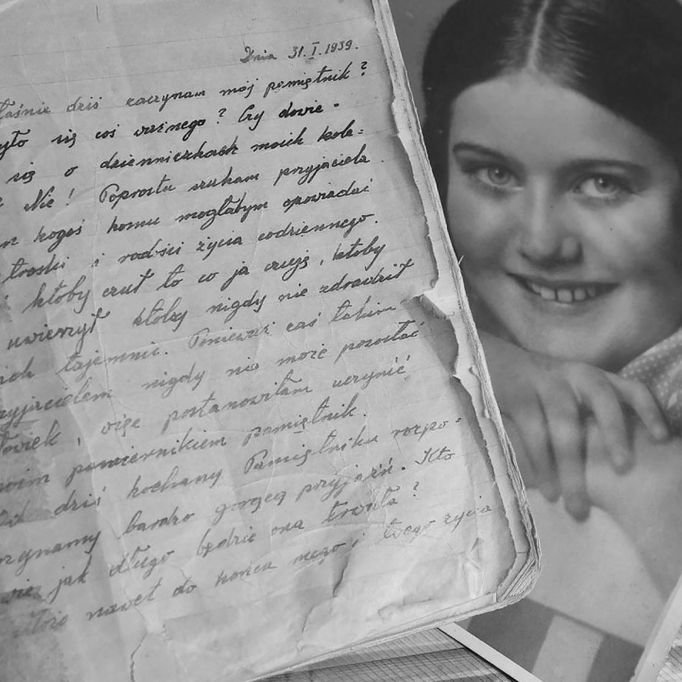 Dnia 31.I.1939.
dziś zaczynam mój pamiętnik?
się coś ważnego? Czy dowie-
się o dzienniczkach moich kole-
Nie! Poprostu szukam przyjaciela.
kogoś komu mogłabym opowiadać
troski i radości życia codziennego.
ktoby czuł to co ja czuję, ktoby
uwierzył ktoby nigdy nie zdradził
tajemnic. Ponieważ zaś takim
nigdy nie może pozostać
, więc postanowiłam uczynić
powiernikiem pamiętnik.
dziś kochany Pamiętniku rozpo-
bardzo gorącą przyjaźń. Kto
jak długo będzie ona trwała?
nawet do końca mego i twego życia